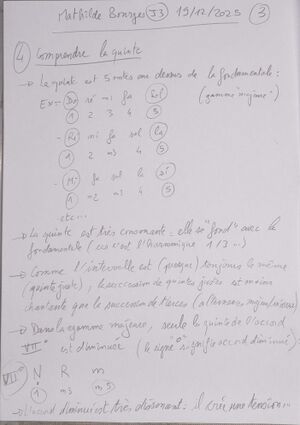 Mathilde Bourges J3 19/12/2025 3
4 Comprendre la quinte
→ La quinte est 5 notes au dessus de la fondamentale :
Ex = Do ré mi fa Sol (gamme majeure)
1 2 3 4 5
- Ré mi fa sol la
1 2 m3 4 5
- Mi fa sol la si
1 m2 m3 4 5
etc...
→ La quinte est très consonante = elle se "fond" avec la
fondamentale (car c'est l'harmonique 1/3...)
→ Comme l'intervalle est (presque) toujours le même
(quinte juste), la succession de quintes justes est moins
chantante que la succession de tierces (alternance majeur/mineur)
→ Dans la gamme majeure, seule la quinte de l'accord
VII° est diminuée (le signe "°" signifie accord diminué) :
VII° N R m
1 m3 m5
→ L'accord diminué est très dissonant : il crée une tension...